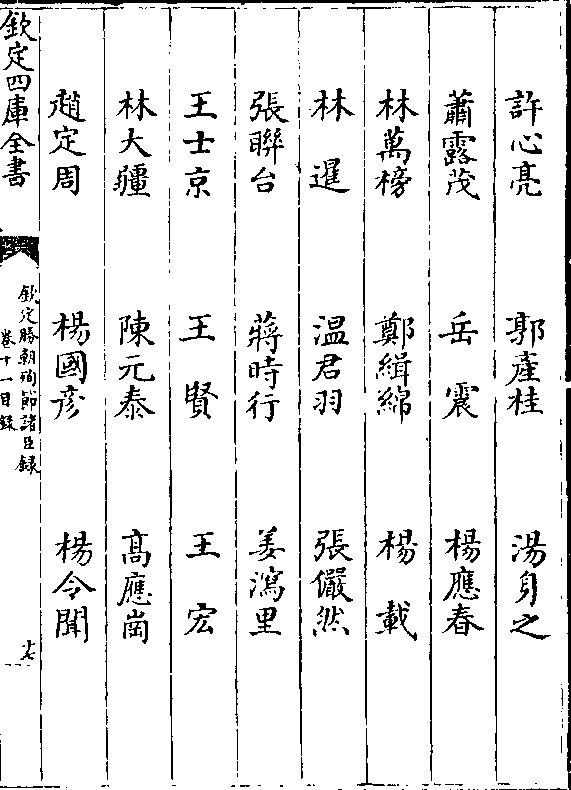 許心亮　郭產桂　湯自之
蕭露茂　岳　震　楊應春
林萬榜　鄭緝綿　楊　載
林　暹　温君羽　張儼然
張聯台　蔣時行　姜瀉里
王士京　王　賢　王　宏
林大疆　陳元泰　高應崗
趙定周　楊國彦　楊令聞
欽定四庫全書
欽定勝朝殉節諸臣録
卷十一目録
十七